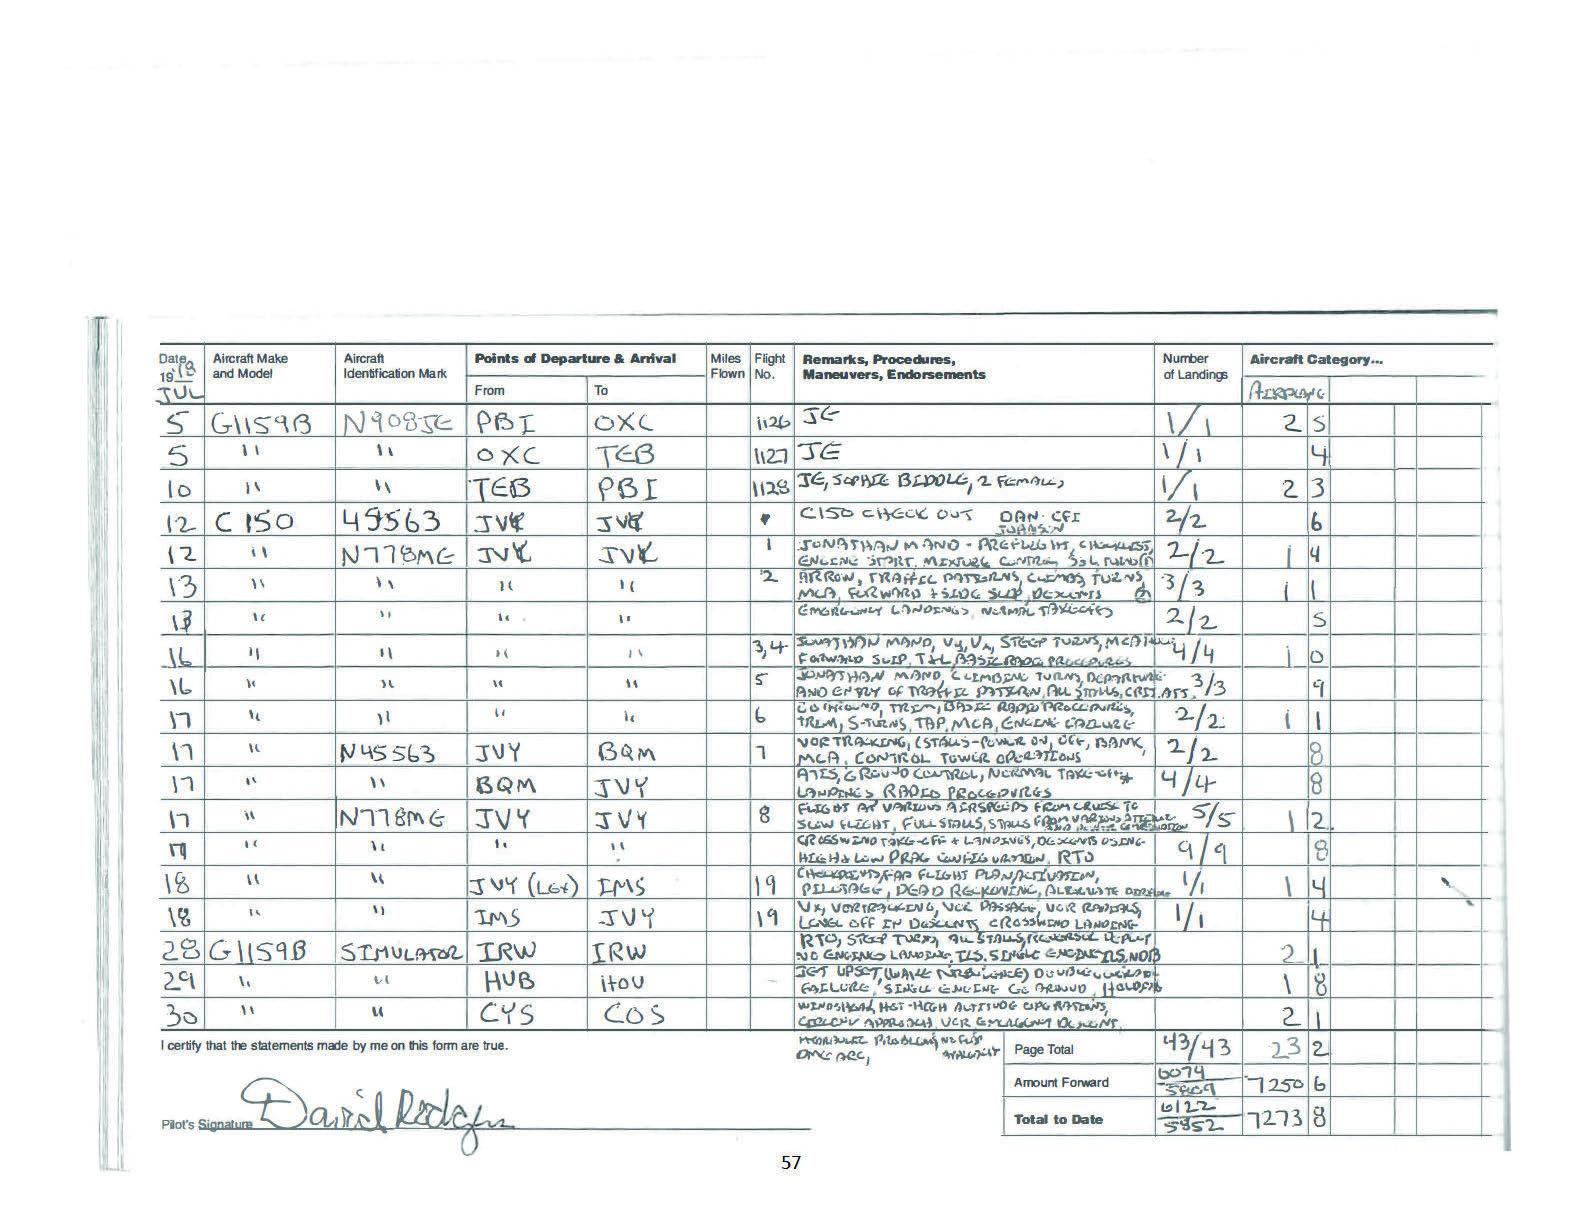 Date Aircraft Make Aircraft Points of Departure & Arrival Miles Flight Remarks, Procedures, Number Aircraft Category...
19 and Model Identification Mark From To Flown No. Maneuvers, Endorsements of Landings AIRPLANE
JUL
5 G1159B N908JE PBI OXC 1126 JE 1/1 2 5
5 " " OXC TEB 1127 JE 1/1 4
10 " " TEB PBI 1128 JE, SOPHIE BIDDLE, 2 FEMALES 1/1 2 3
12 C 150 45563 JVY JVY C150 CHECK OUT DAN - CFI 2/2 6
12 " N778ME JVY JVY 1 JONATHAN MANO - PREFLIGHT, CHECKLIST, 2/2 1 4
ENGINE START, MIXTURE CONTROL
13 " " " " 2 ARROW, TRAFFIC PATTERNS, CLIMBS, TURNS, 3/3 1 1
MCA, FORWARD + SIDE SLIP, DESCENTS
13 " " " " EMERGENCY LANDINGS, NORMAL TAKEOFFS 2/2 5
16 " " " " 3,4 JONATHAN MANO, Vy, Vx, STEEP TURNS, MCA 4/4 1 0
FORWARD SLIP, T+L, BASIC RADIO PROCEDURES
16 " " " " 5 JONATHAN MANO, CLIMBING TURNS, DEPARTURE 3/3 9
AND ENTRY OF TRAFFIC PATTERN, ALL STALLS,
17 " " " " 6 TRIM, BASIC RADIO PROCEDURES, 2/2 1 1
TRIM, S-TURNS, TAP, MCA, ENGINE FAILURE
17 " N45563 JVY BQM 7 VOR TRACKING, (STALLS - POWER ON, OFF, BANK, 2/2 8
MCA, CONTROL TOWER OPERATIONS
17 " " BQM JVY ATIS, GROUND CONTROL, NORMAL TAKE-OFF + 4/4 8
LANDINGS RADIO PROCEDURES
17 " N778ME JVY JVY 8 FLIGHT AT VARIOUS AIRSPEEDS FROM CRUISE TO 5/5 1 2
SLOW FLIGHT, FULL STALLS, STALLS FROM VARIOUS
17 " " " " CROSSWIND TAKE-OFF + LANDINGS, DESCENTS USING 9/9 8
HIGH + LOW DRAG CONFIGURATION, RTO
18 " " JVY IMS 19 FLIGHT PLAN/ACTIVATION, 1/1 1 4
PILOTAGE, DEAD RECKONING, ALTERNATE
18 " " IMS JVY 19 Vx, VOR TRACKING, VOR PASSAGE, VOR RADIALS, 1/1 4
LEVEL OFF IN DESCENTS, CROSSWIND LANDING
28 G1159B SIMULATOR IRW IRW RTO, STEEP TURNS, ALL STALLS, 2 1
NO ENGINES LANDING, ILS, SINGLE ENGINE ILS, NDB
29 " " HUB HOU JET UPSET (WAKE TURBULENCE) DOUBLE 1 8
FAILURE, SINGLE ENGINE GO AROUND, HOLDING
30 " " CYS COS WINDSHEAR, HOT-HIGH ALTITUDE OPERATIONS, 2 1
APPROACH, VOR EMERGENCY DESCENT,
I certify that the statements made by me on this form are true. HYDRAULIC PROBLEMS, NO FLAP Page Total 43/43 23 2
DME ARC,
Amount Forward 6079 5809 7250 6
Total to Date 6122 5852 7273 8
Pilot's Signature David Rodgers
57